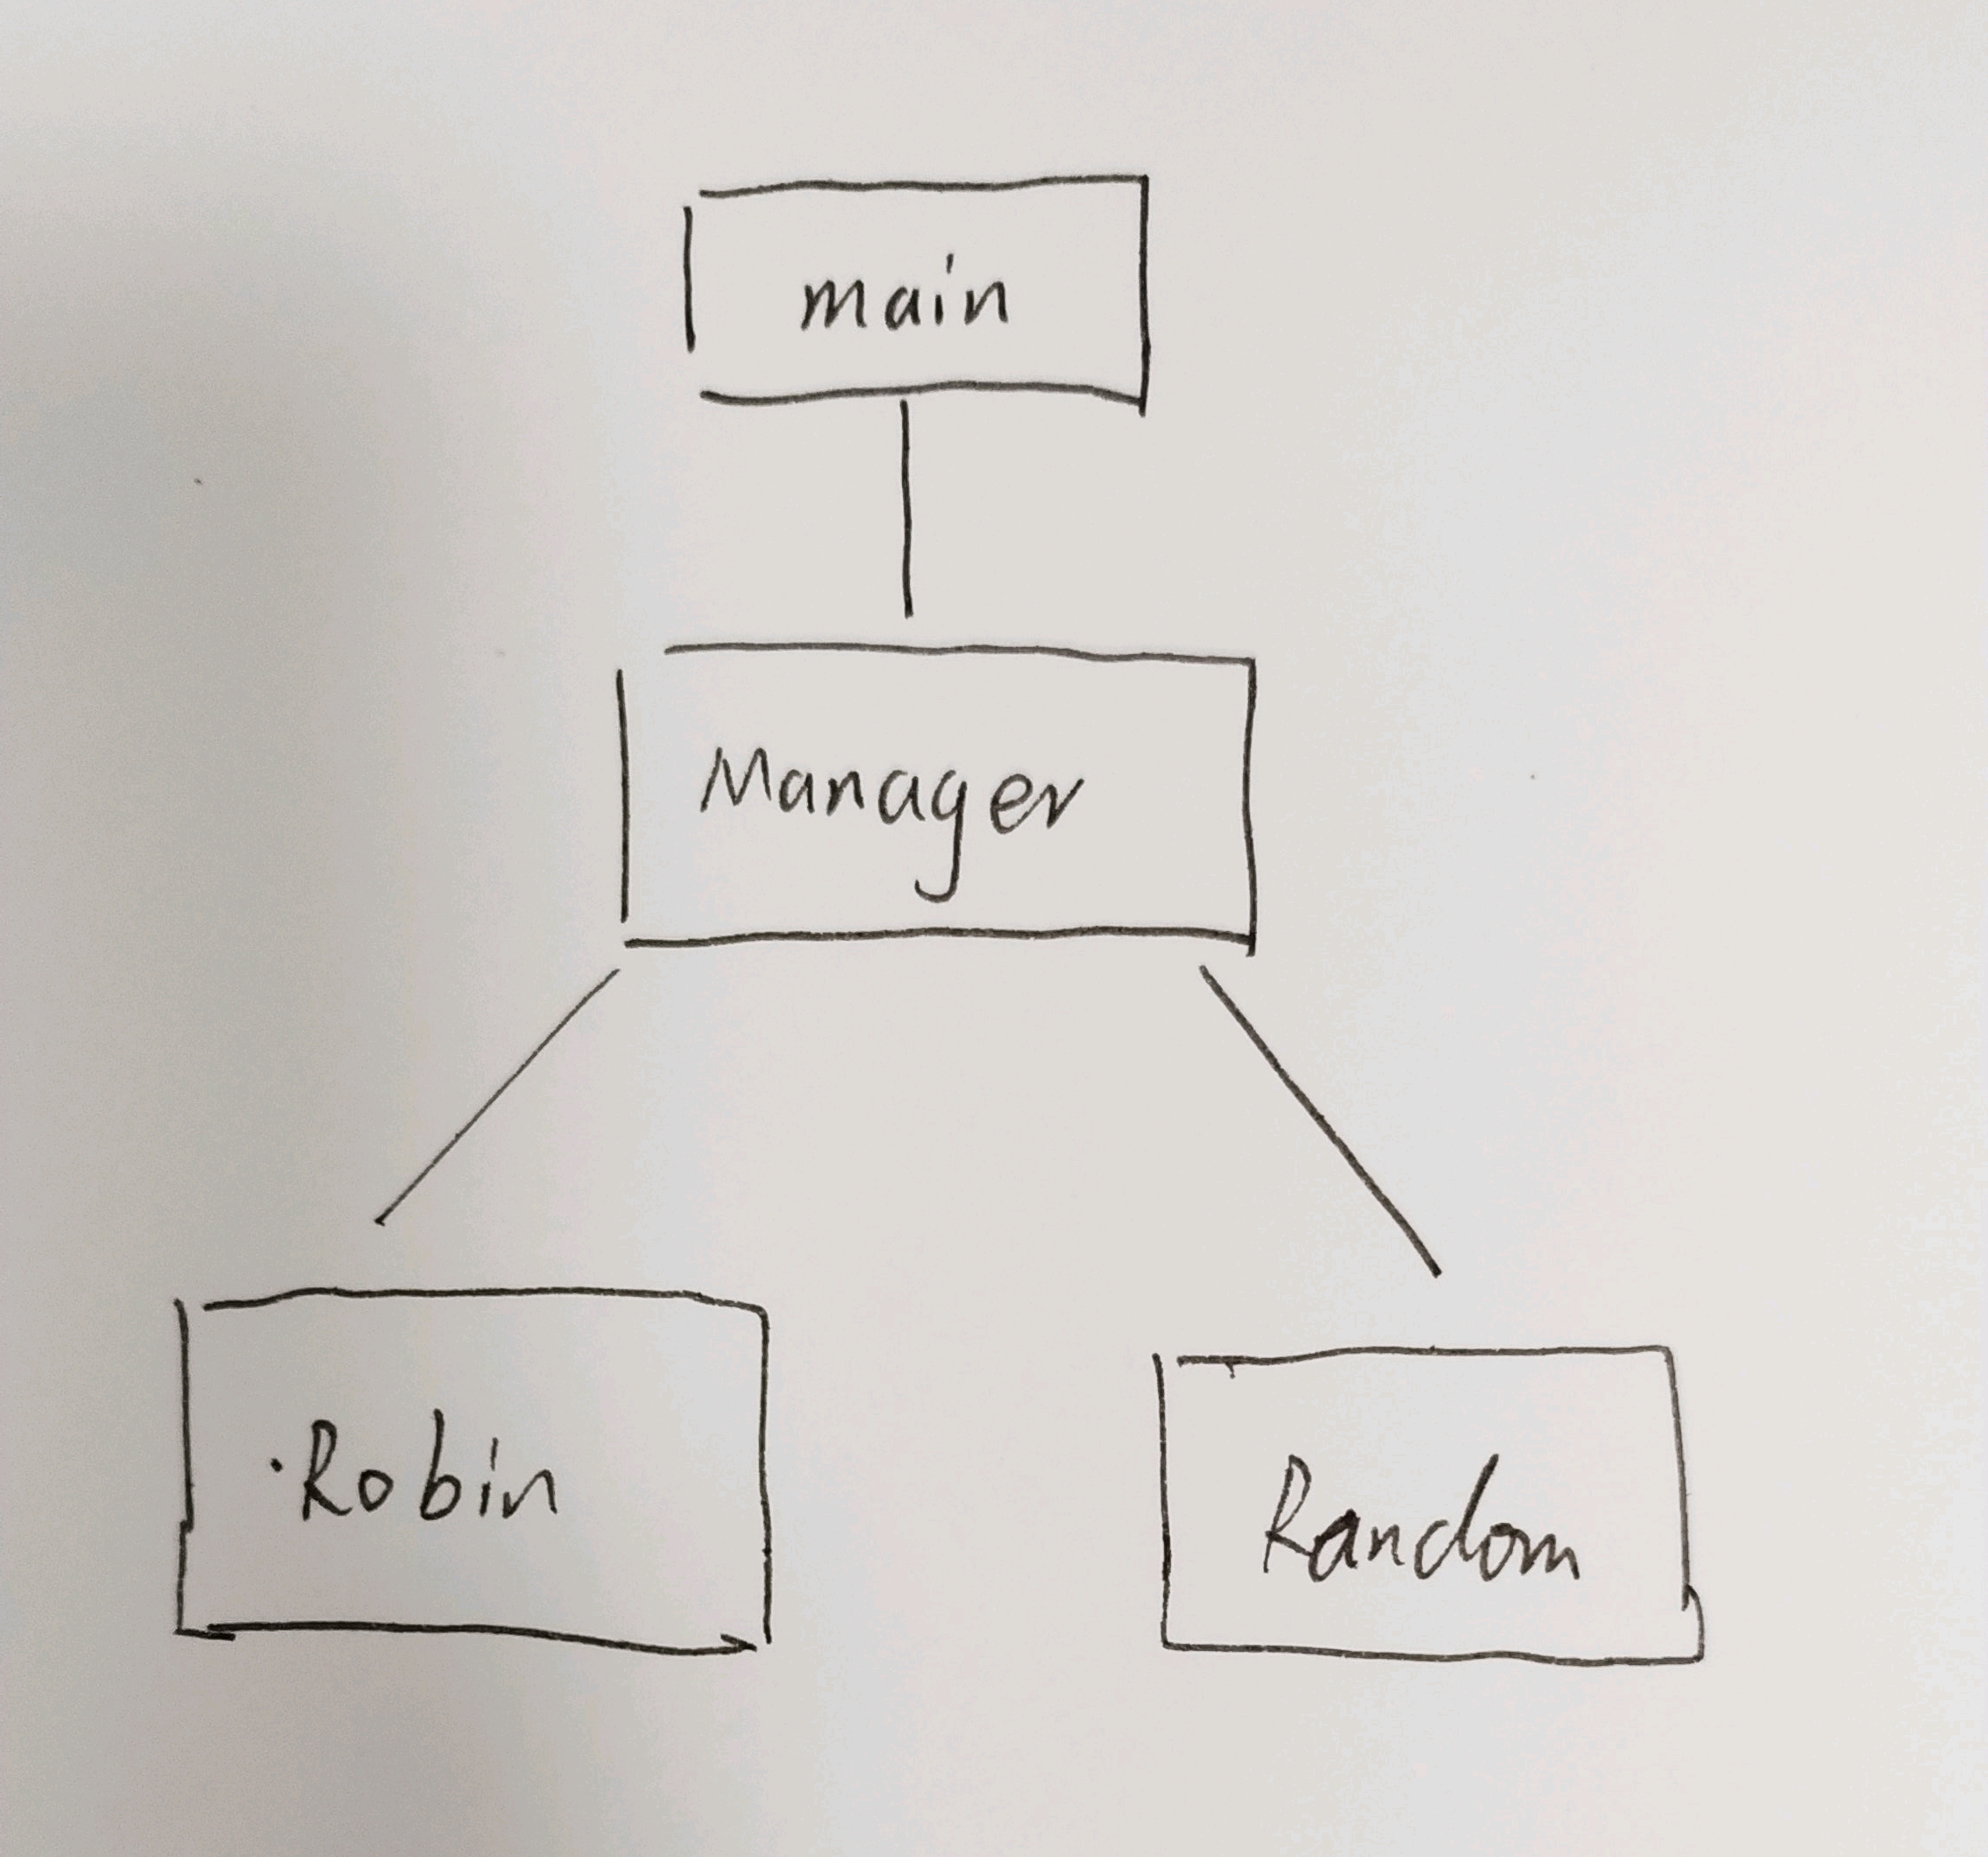 main
Manager
Robin
Random